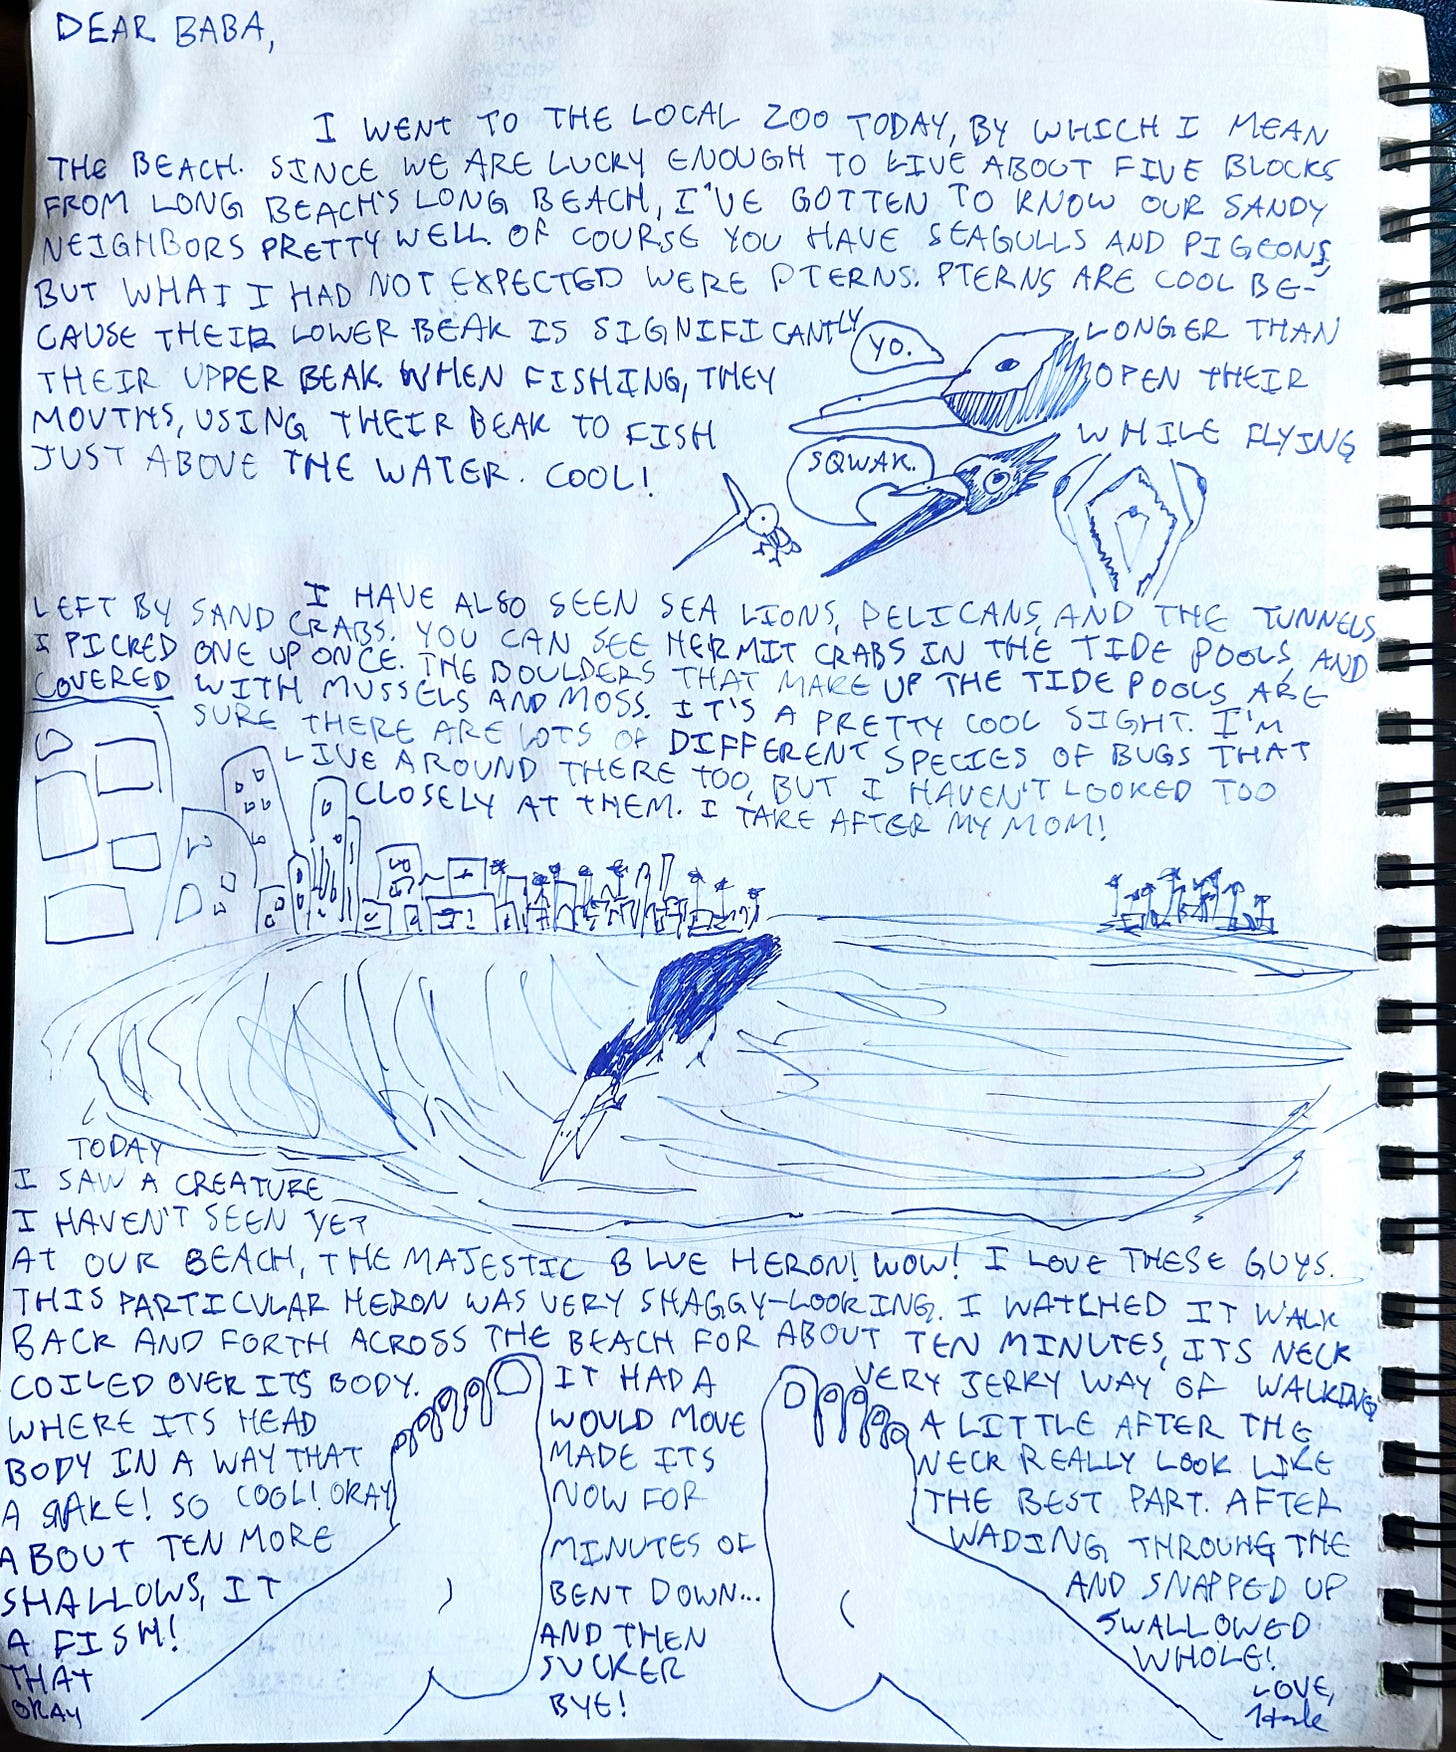 DEAR BABA,
I WENT TO THE LOCAL ZOO TODAY, BY WHICH I MEAN
THE BEACH. SINCE WE ARE LUCKY ENOUGH TO LIVE ABOUT FIVE BLOCKS
FROM LONG BEACH'S LONG BEACH, I'VE GOTTEN TO KNOW OUR SANDY
NEIGHBORS PRETTY WELL. OF COURSE YOU HAVE SEAGULLS AND PIGEONS,
BUT WHAT I HAD NOT EXPECTED WERE PTERNS. PTERNS ARE COOL BE-
CAUSE THEIR LOWER BEAK IS SIGNIFICANTLY LONGER THAN
YO.
THEIR UPPER BEAK. WHEN FISHING, THEY OPEN THEIR
MOUTHS, USING THEIR BEAK TO FISH WHILE FLYING
JUST ABOVE THE WATER. COOL!
SQWAK.
I HAVE ALSO SEEN SEA LIONS, PELICANS, AND THE TUNNELS
LEFT BY SAND CRABS. YOU CAN SEE HERMIT CRABS IN THE TIDE POOLS, AND
I PICKED ONE UP ONCE. THE BOULDERS THAT MAKE UP THE TIDE POOLS ARE
COVERED WITH MUSSELS AND MOSS. IT'S A PRETTY COOL SIGHT. I'M
SURE THERE ARE LOTS OF DIFFERENT SPECIES OF BUGS THAT
LIVE AROUND THERE TOO, BUT I HAVEN'T LOOKED TOO
CLOSELY AT THEM. I TAKE AFTER MY MOM!
TODAY
I SAW A CREATURE
I HAVEN'T SEEN YET
AT OUR BEACH, THE MAJESTIC BLUE HERON! WOW! I LOVE THESE GUYS.
THIS PARTICULAR HERON WAS VERY SHAGGY-LOOKING. I WATCHED IT WALK
BACK AND FORTH ACROSS THE BEACH FOR ABOUT TEN MINUTES, ITS NECK
COILED OVER ITS BODY. IT HAD A VERY JERKY WAY OF WALKING
WHERE ITS HEAD WOULD MOVE A LITTLE AFTER THE
BODY IN A WAY THAT MADE ITS NECK REALLY LOOK LIKE
A SNAKE! SO COOL! OKAY NOW FOR THE BEST PART. AFTER
ABOUT TEN MORE MINUTES OF WADING THROUHG THE
SHALLOWS, IT BENT DOWN... AND SNAPPED UP
A FISH! AND THEN SWALLOWED
THAT SUCKER WHOLE!
OKAY BYE! LOVE,